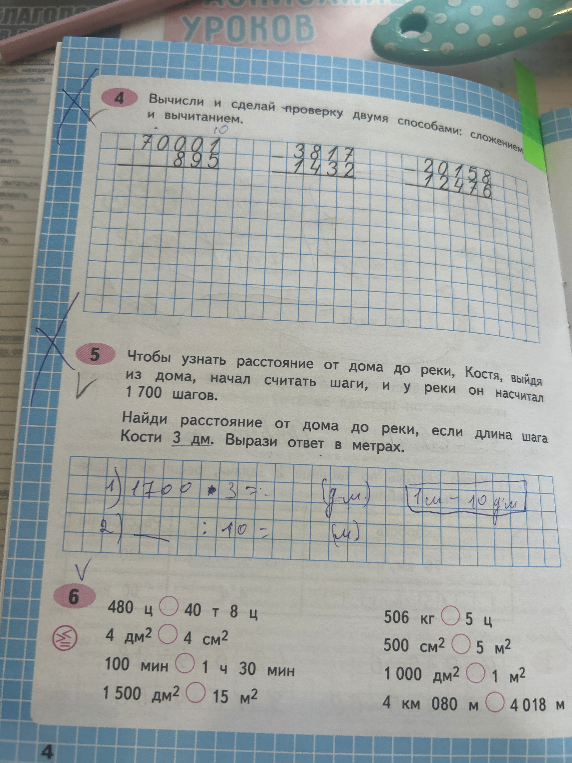 УРОКОВ
4 Вычисли и сделай проверку двумя способами: сложением
и вычитанием.
10
− 70001 − 3817 − 20158
895 1432 12476
5 Чтобы узнать расстояние от дома до реки, Костя, выйдя
из дома, начал считать шаги, и у реки он насчитал
1 700 шагов.
Найди расстояние от дома до реки, если длина шага
Кости 3 дм. Вырази ответ в метрах.
1) 1700 • 3 = (дм) 1м − 10 дм
2) __ : 10 = (м)
6
480 ц ○ 40 т 8 ц 506 кг ○ 5 ц
4 дм² ○ 4 см² 500 см² ○ 5 м²
100 мин ○ 1 ч 30 мин 1 000 дм² ○ 1 м²
1 500 дм² ○ 15 м² 4 км 080 м ○ 4 018 м
4